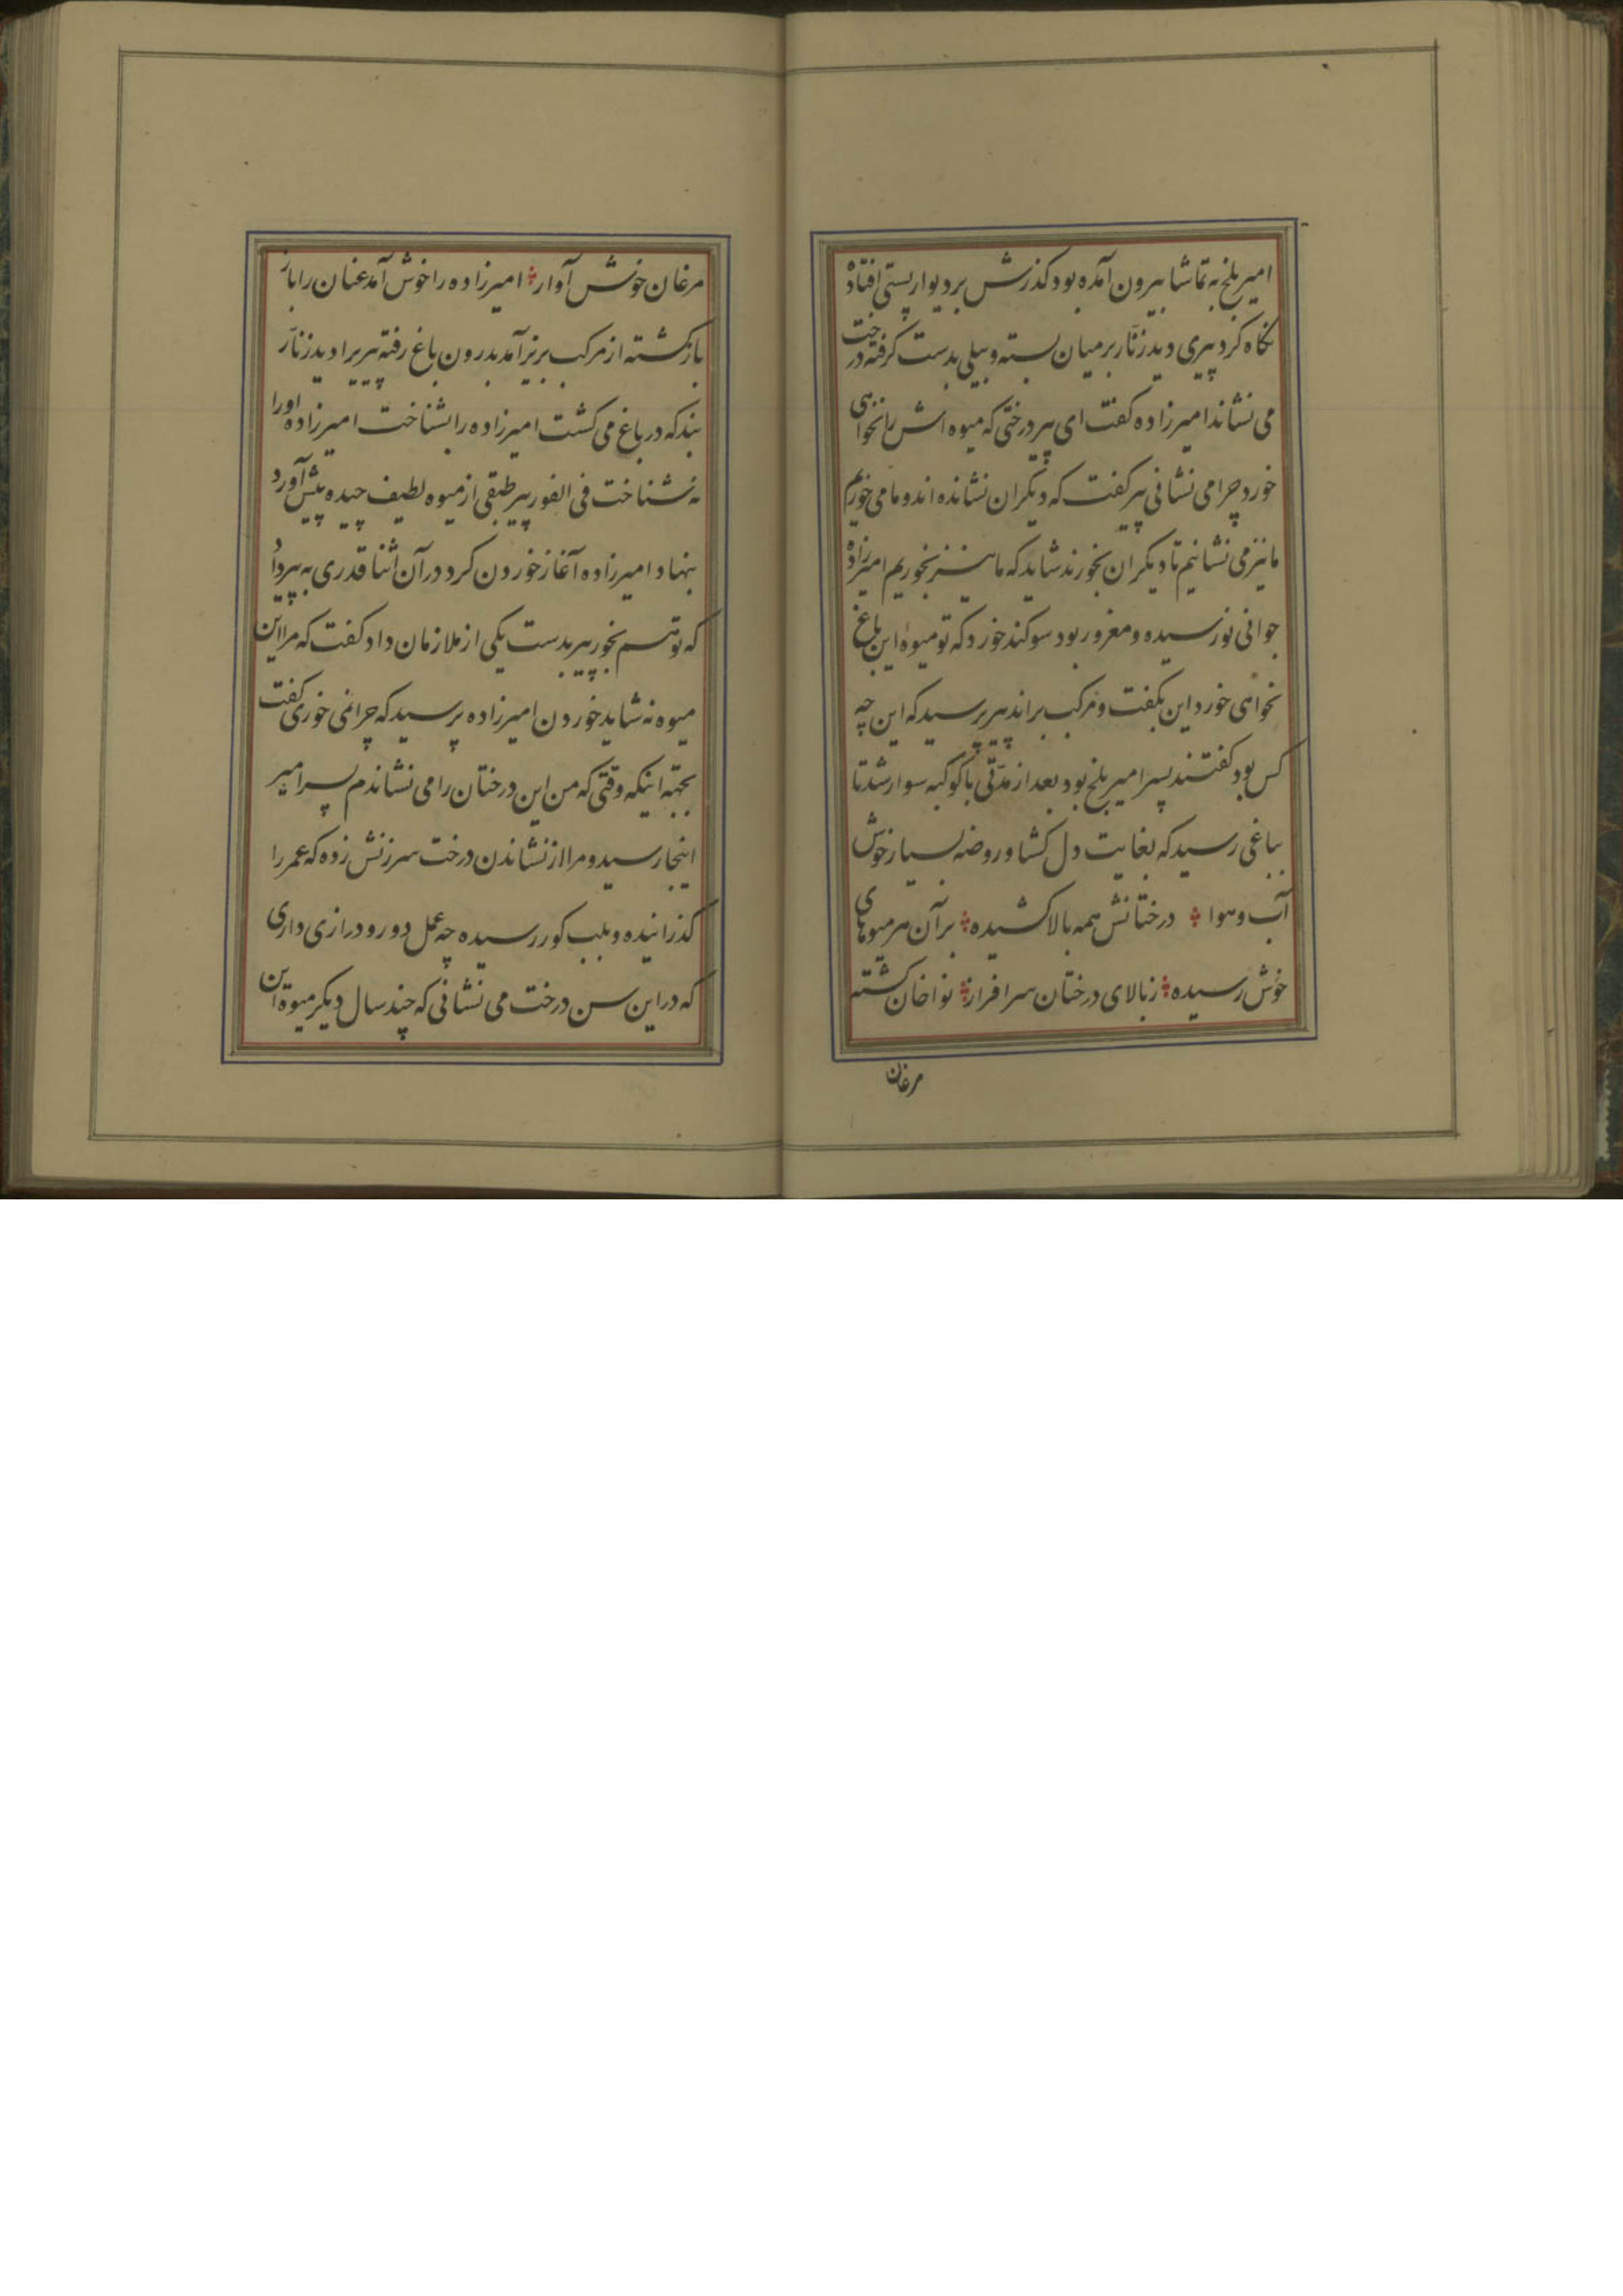 امیر بلخ به تماشا بیرون آمده بود کذرش بر دیوار بستی افتاد
نکاه کرد پیری دید زنّار بر میان بسته و بیلی بدست کرفته درخت
می نشاند امیرزاده کفت ای پیر درختی که میوه اش را نخواهی
خورد چرا می نشانی پیر کفت که دیکران نشانده اند و ما می خوریم
ما نیز می نشانیم تا دیکران بخورند شاید که ما نیز بخوریم امیرزاده
جوانی نورسیده و مغرور بود سوکند خورد که تو میوه این باغ
نخواهی خورد این بکفت و مرکب براند پیر پرسید که این چه
کس بود کفتند پسر امیر بلخ بود بعد از مدّتی با کوکبه سوار شد تا
بباغی رسید که بغایت دل کشا و روضه بسیار خوش
آب و هوا درختانش همه بالا کشیده بر آن هر میوهای
خوش رسیده زبالای درختان سرافراز نواخان کشته
مرغان
مرغان خوش آواز امیرزاده را خوش آمد عنان را باز
باز کشته از مرکب بزیر آمد بدرون باغ رفته پیر برا دید زنّار
بند که در باغ می کشت امیرزاده را بشناخت امیرزاده او را
نه شناخت فی الفور پیر طبقی از میوه لطیف چیده پیش آورد
بنهاد امیرزاده آغاز خوردن کرد در آن اثنا قدری به پیر داد
که تو هم بخور پیر بدست یکی از ملازمان داد کفت که مرا این
میوه نه شاید خوردن امیرزاده پرسید که چرا نمی خوری کفت
بجهته اینکه وقتی که من این درختان را می نشاندم پسر امیر
اینجا رسید و مرا از نشاندن درخت سرزنش زده که عمر را
کذرانیده و بلب کور رسیده چه عمل دور و درازی داری
که در این سن درخت می نشانی که چند سال دیکر میوة این